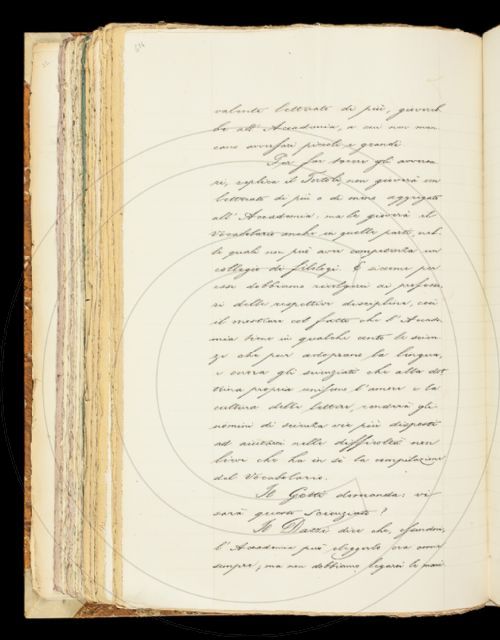 valente letterato di più, gioverebbe
all'Accademia, a cui non man
cano avversari piccoli e grandi.
Per far tacere gli avversa
ri, replica il Tortoli, non gioverà un
letterato di più o di meno aggregato
all'Accademia; ma le gioverà il
Vocabolario anche in quelle parti, nel
le quali non può aver competenza un
collegio di filologi. E siccome per
esse dobbiamo rivolgerci ai professo
ri delle respettive discipline, così
il mostrare col fatto che l'Accade
mia tiene in qualche conto le scien
ze che pur adoprano la lingua,
e onora gli scienziati che alla dot
trina propria uniscono l'amore e la
cultura delle lettere, renderà gli
uomini di scienza vie più disposti
ad aiutarci nelle difficoltà non
lievi che ha in sè la compilazione
del Vocabolario.
Il Gotti domanda: vi
sarà questo Scienziato?
Il Dazzi dice che, essendovi,
l'Accademia può eleggerlo ora come
sempre; ma non dobbiamo legarci le mani